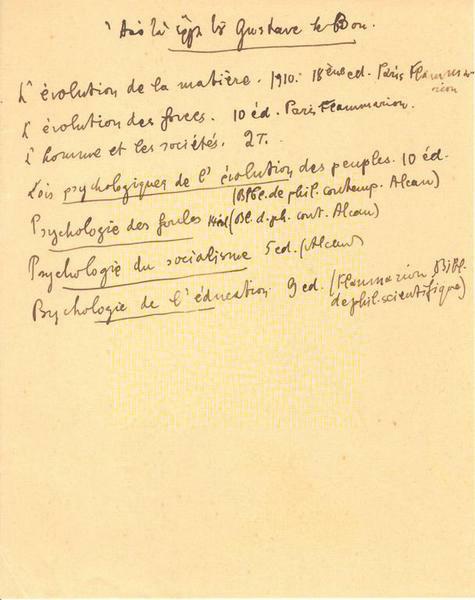 Gustave le Bon.
L'évolution de la matière. 1910. 18ème ed. Paris Flammarion
L'évolution des forces. 10 éd. Paris Flammarion.
L'homme et les sociétés. 2 T.
Lois psychologiques de l'évolution des peuples. 10 éd.
(Bibl. de phil. contemp. Alcan)
Psychologie des foules (Bl. d. ph. cont. Alcan)
Psychologie du socialisme 5 ed. (Alcan)
Psychologie de l'éducation 9 ed. (Flammarion, Bibl.
de phil. scientifique)